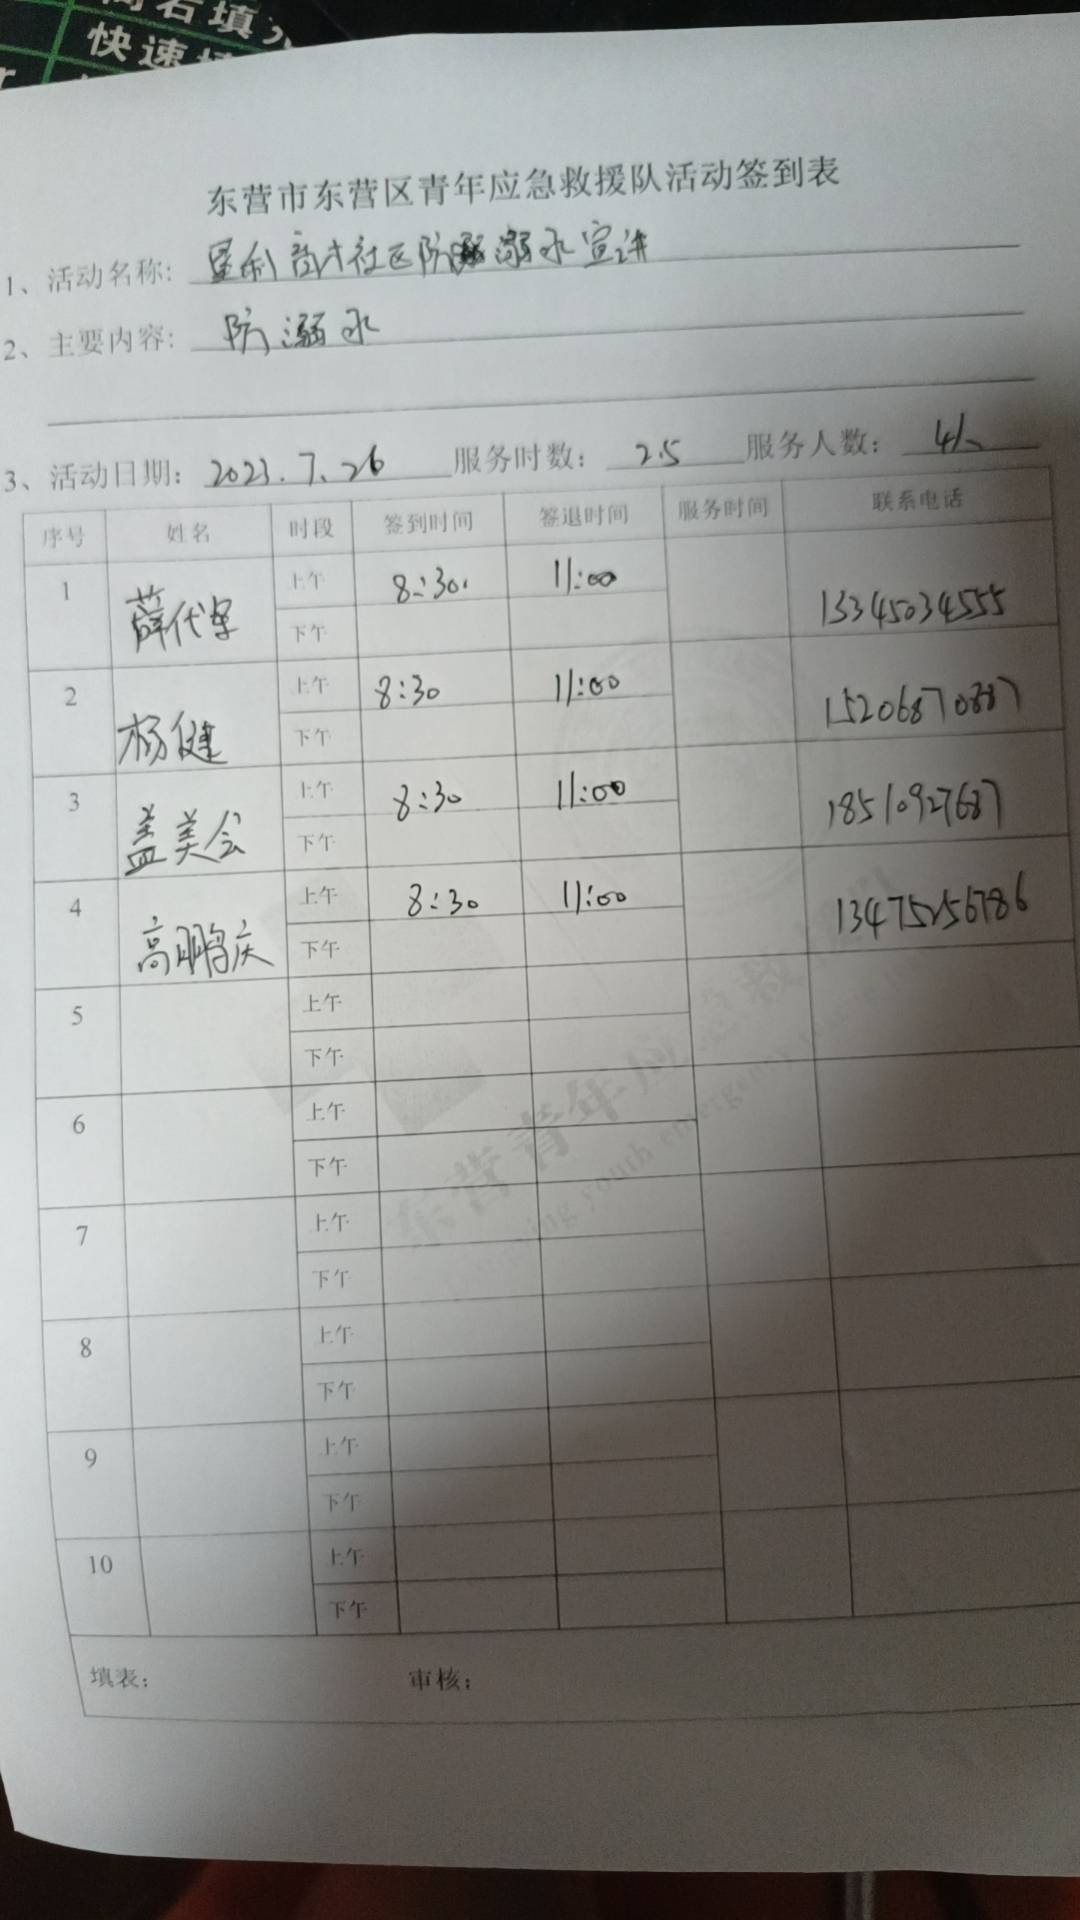 快速
东营市东营区青年应急救援队活动签到表
1、活动名称: 垦利 社区防溺水宣讲
2、主要内容: 防溺水
3、活动日期: 2023.7.26 服务时数: 2.5 服务人数: 4人
序号 姓名 时段 签到时间 签退时间 服务时间 联系电话
1 薛代军 上午 8:30 11:00 13345034555
下午
2 杨健 上午 8:30 11:00 15206870887
下午
3 盖美会 上午 8:30 11:00 18510927687
下午
4 高鹏庆 上午 8:30 11:00 13475256786
下午
5 上午
下午
6 上午
下午
7 上午
下午
8 上午
下午
9 上午
下午
10 上午
下午
填表: 审核:
东营青年应急救
youth emergency